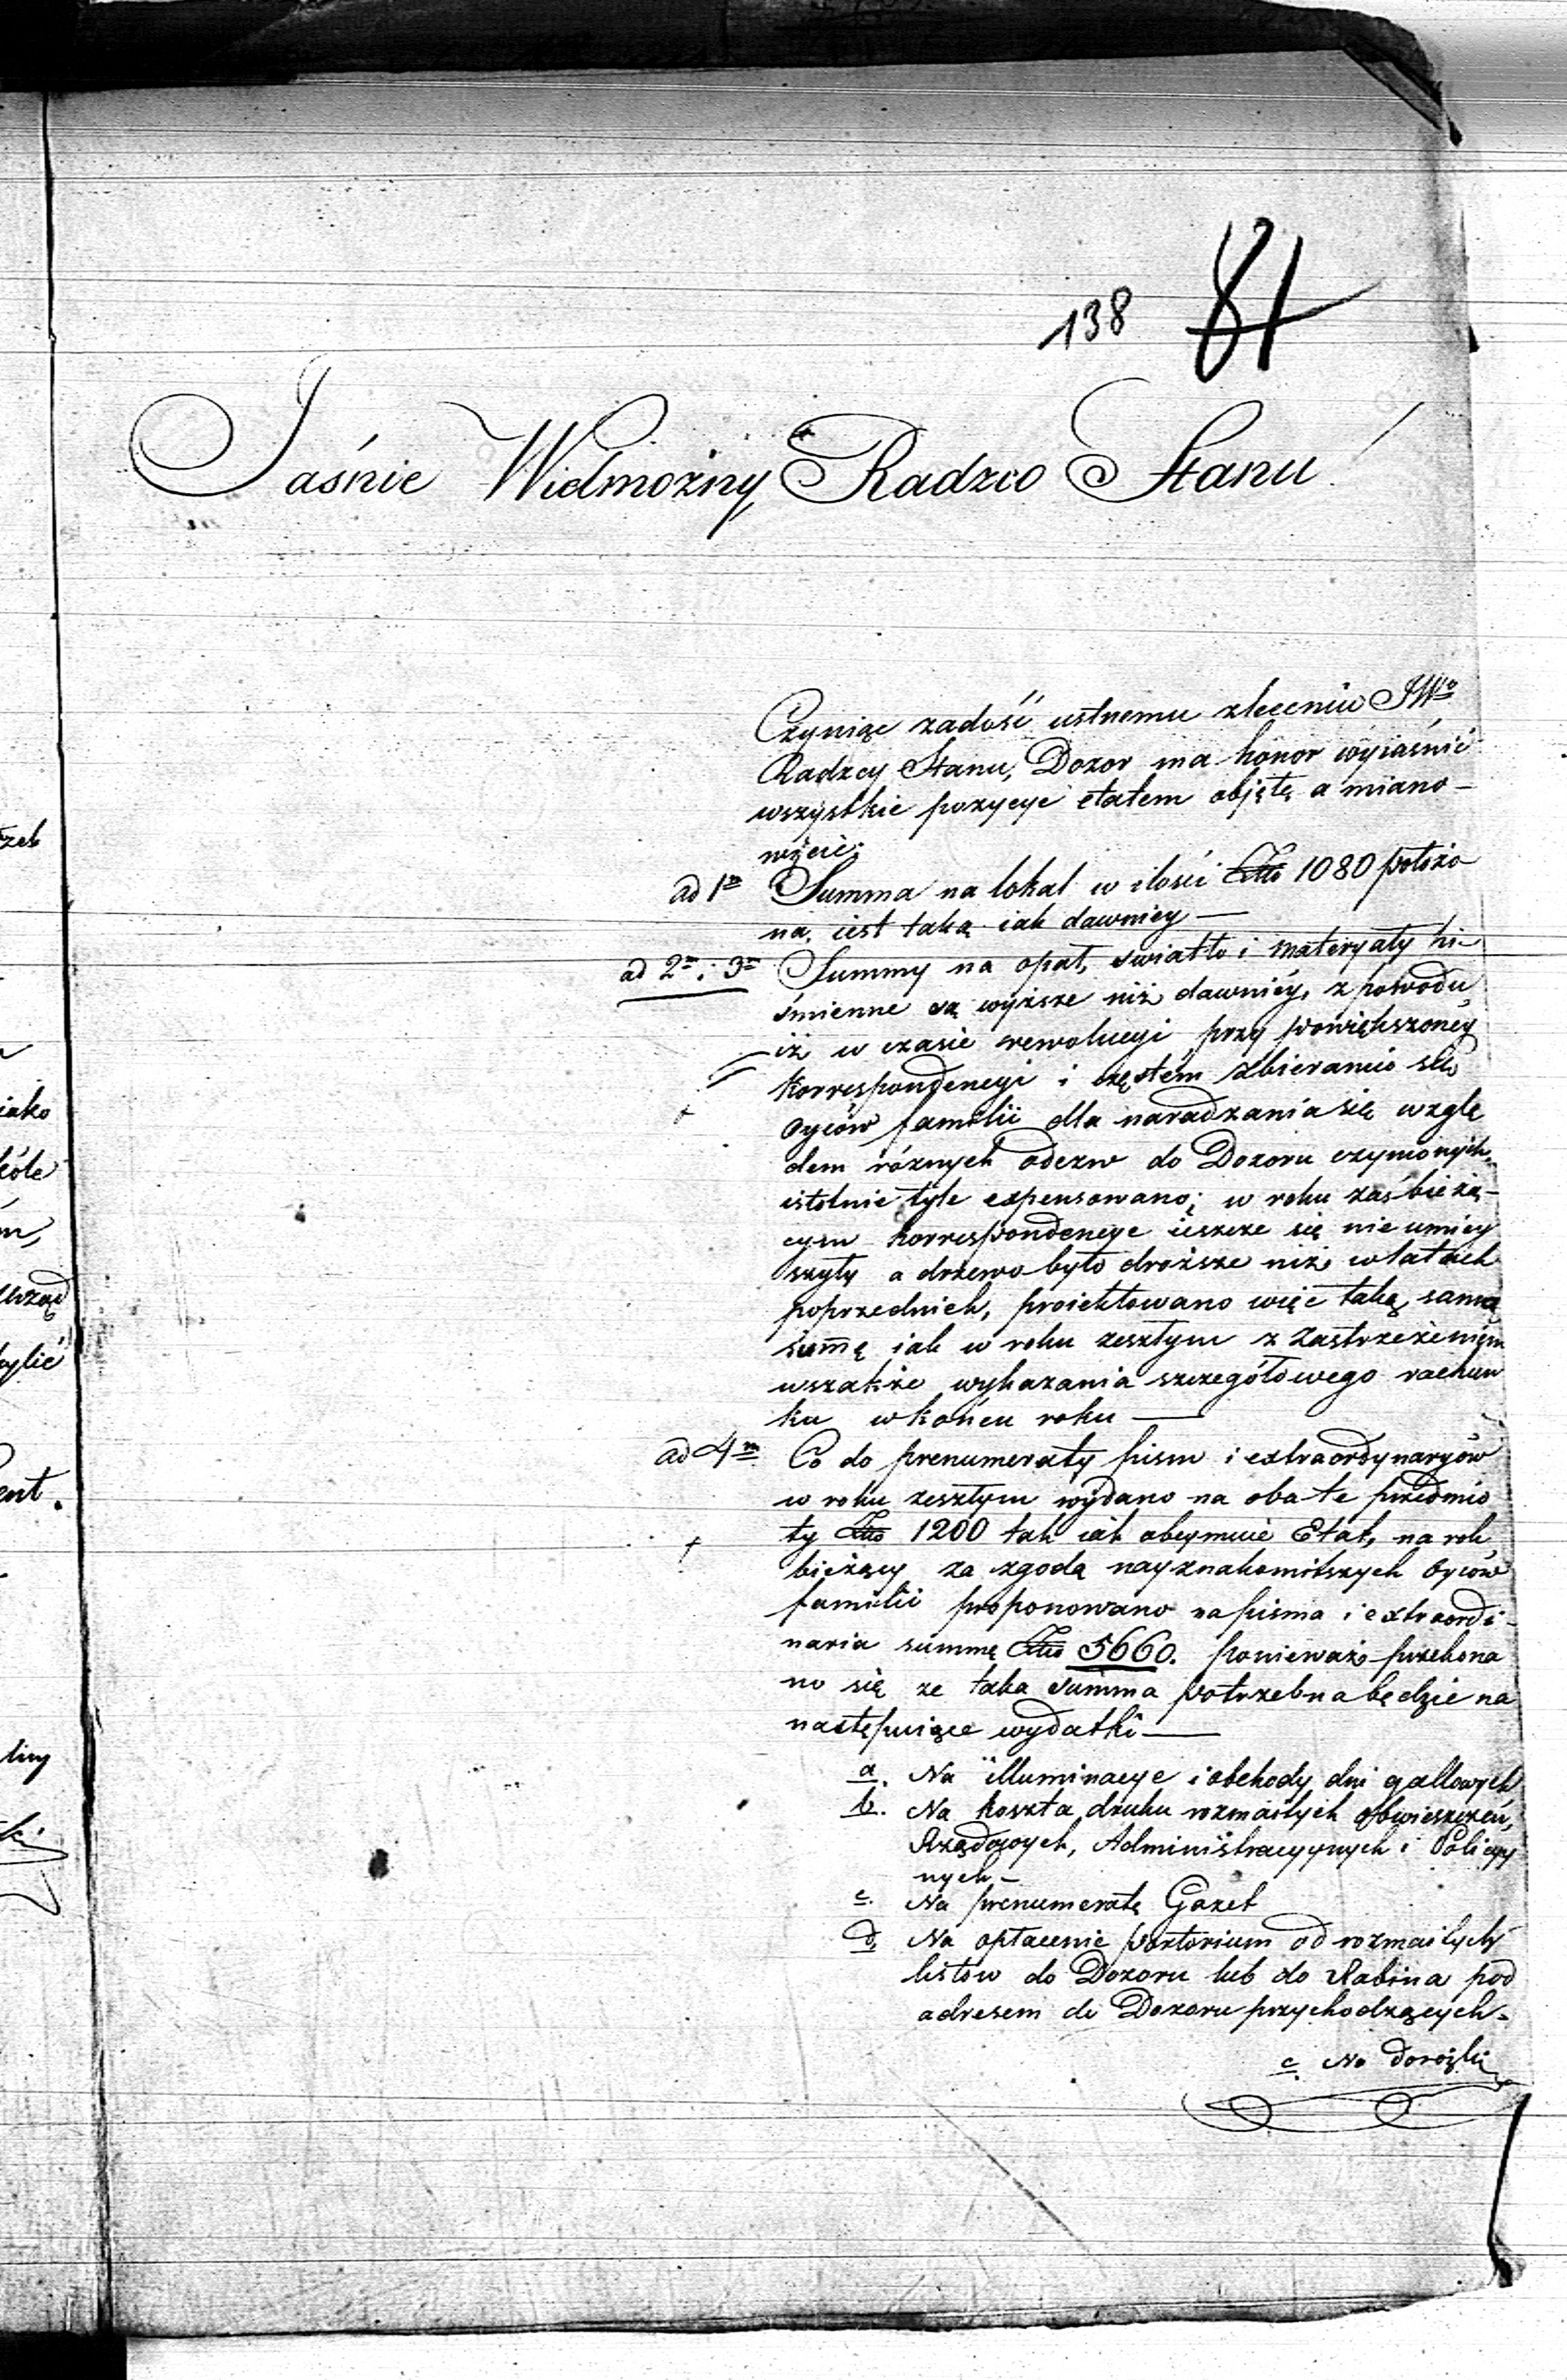 138 81
Jaśnie Wielmożny Radzco Stanu!
Czyniąc zadość ustnemu zleceniu JWo
Radzcy Stanu, Dozor ma honor wyiaśnić
wszystkie pozycye etatem objętę a miano-
wicie:
ad 1m Summa na lokal w ilości Złto 1080 położo
na, iest taką iak dawniey —
ad 2m i 3m Summy na opał, swiatło i materyały pi-
śmienne są wyższe niż dawniéy, z powodu
iż w czasie rewolucyi przy powiększonéy
korrespondencyi i częstém zbieraniu się
Oyców familii dla naradzania się wzglę
dem różnych odezw do Dozoru czynionych,
istotnie tyle expensowano; w roku zaś bieżą-
cym korrespondencye ieszcze się nie umiey
szyły a drzewo było droższe niż w latach
poprzednich, proiektowano więc taką samą
summę iak w roku zeszłym z zastrzeżeniem
wszakże wykazania szczegółowego rachun
ku w końcu roku —
ad 4m Co do prenumeraty pism i extraordynaryów
w roku zeszłym wydano na oba te przedmio
ty Złto 1200 tak iak obeymuie Etat, na rok
bieżący za zgodą nayznakomitszych Oyców
familii proponowano na pisma i extraordi-
naria summę Złto 5660. ponieważ przekona
no się ze taka summa potrzebna będzie na
następuiące wydatki —
a. Na illuminacye i obchody dni gallowych
b. Na koszta druku rozmaitych obwieszczeń,
Rządowych, Administracyynych i Policyy
nych —
c. Na prenumeratę Gazet
d. Na opłacenie portorium od rozmaitych
listów do Dozoru lub do Rabina pod
adresem do Dozoru przychodzących.
e. Na dorożki